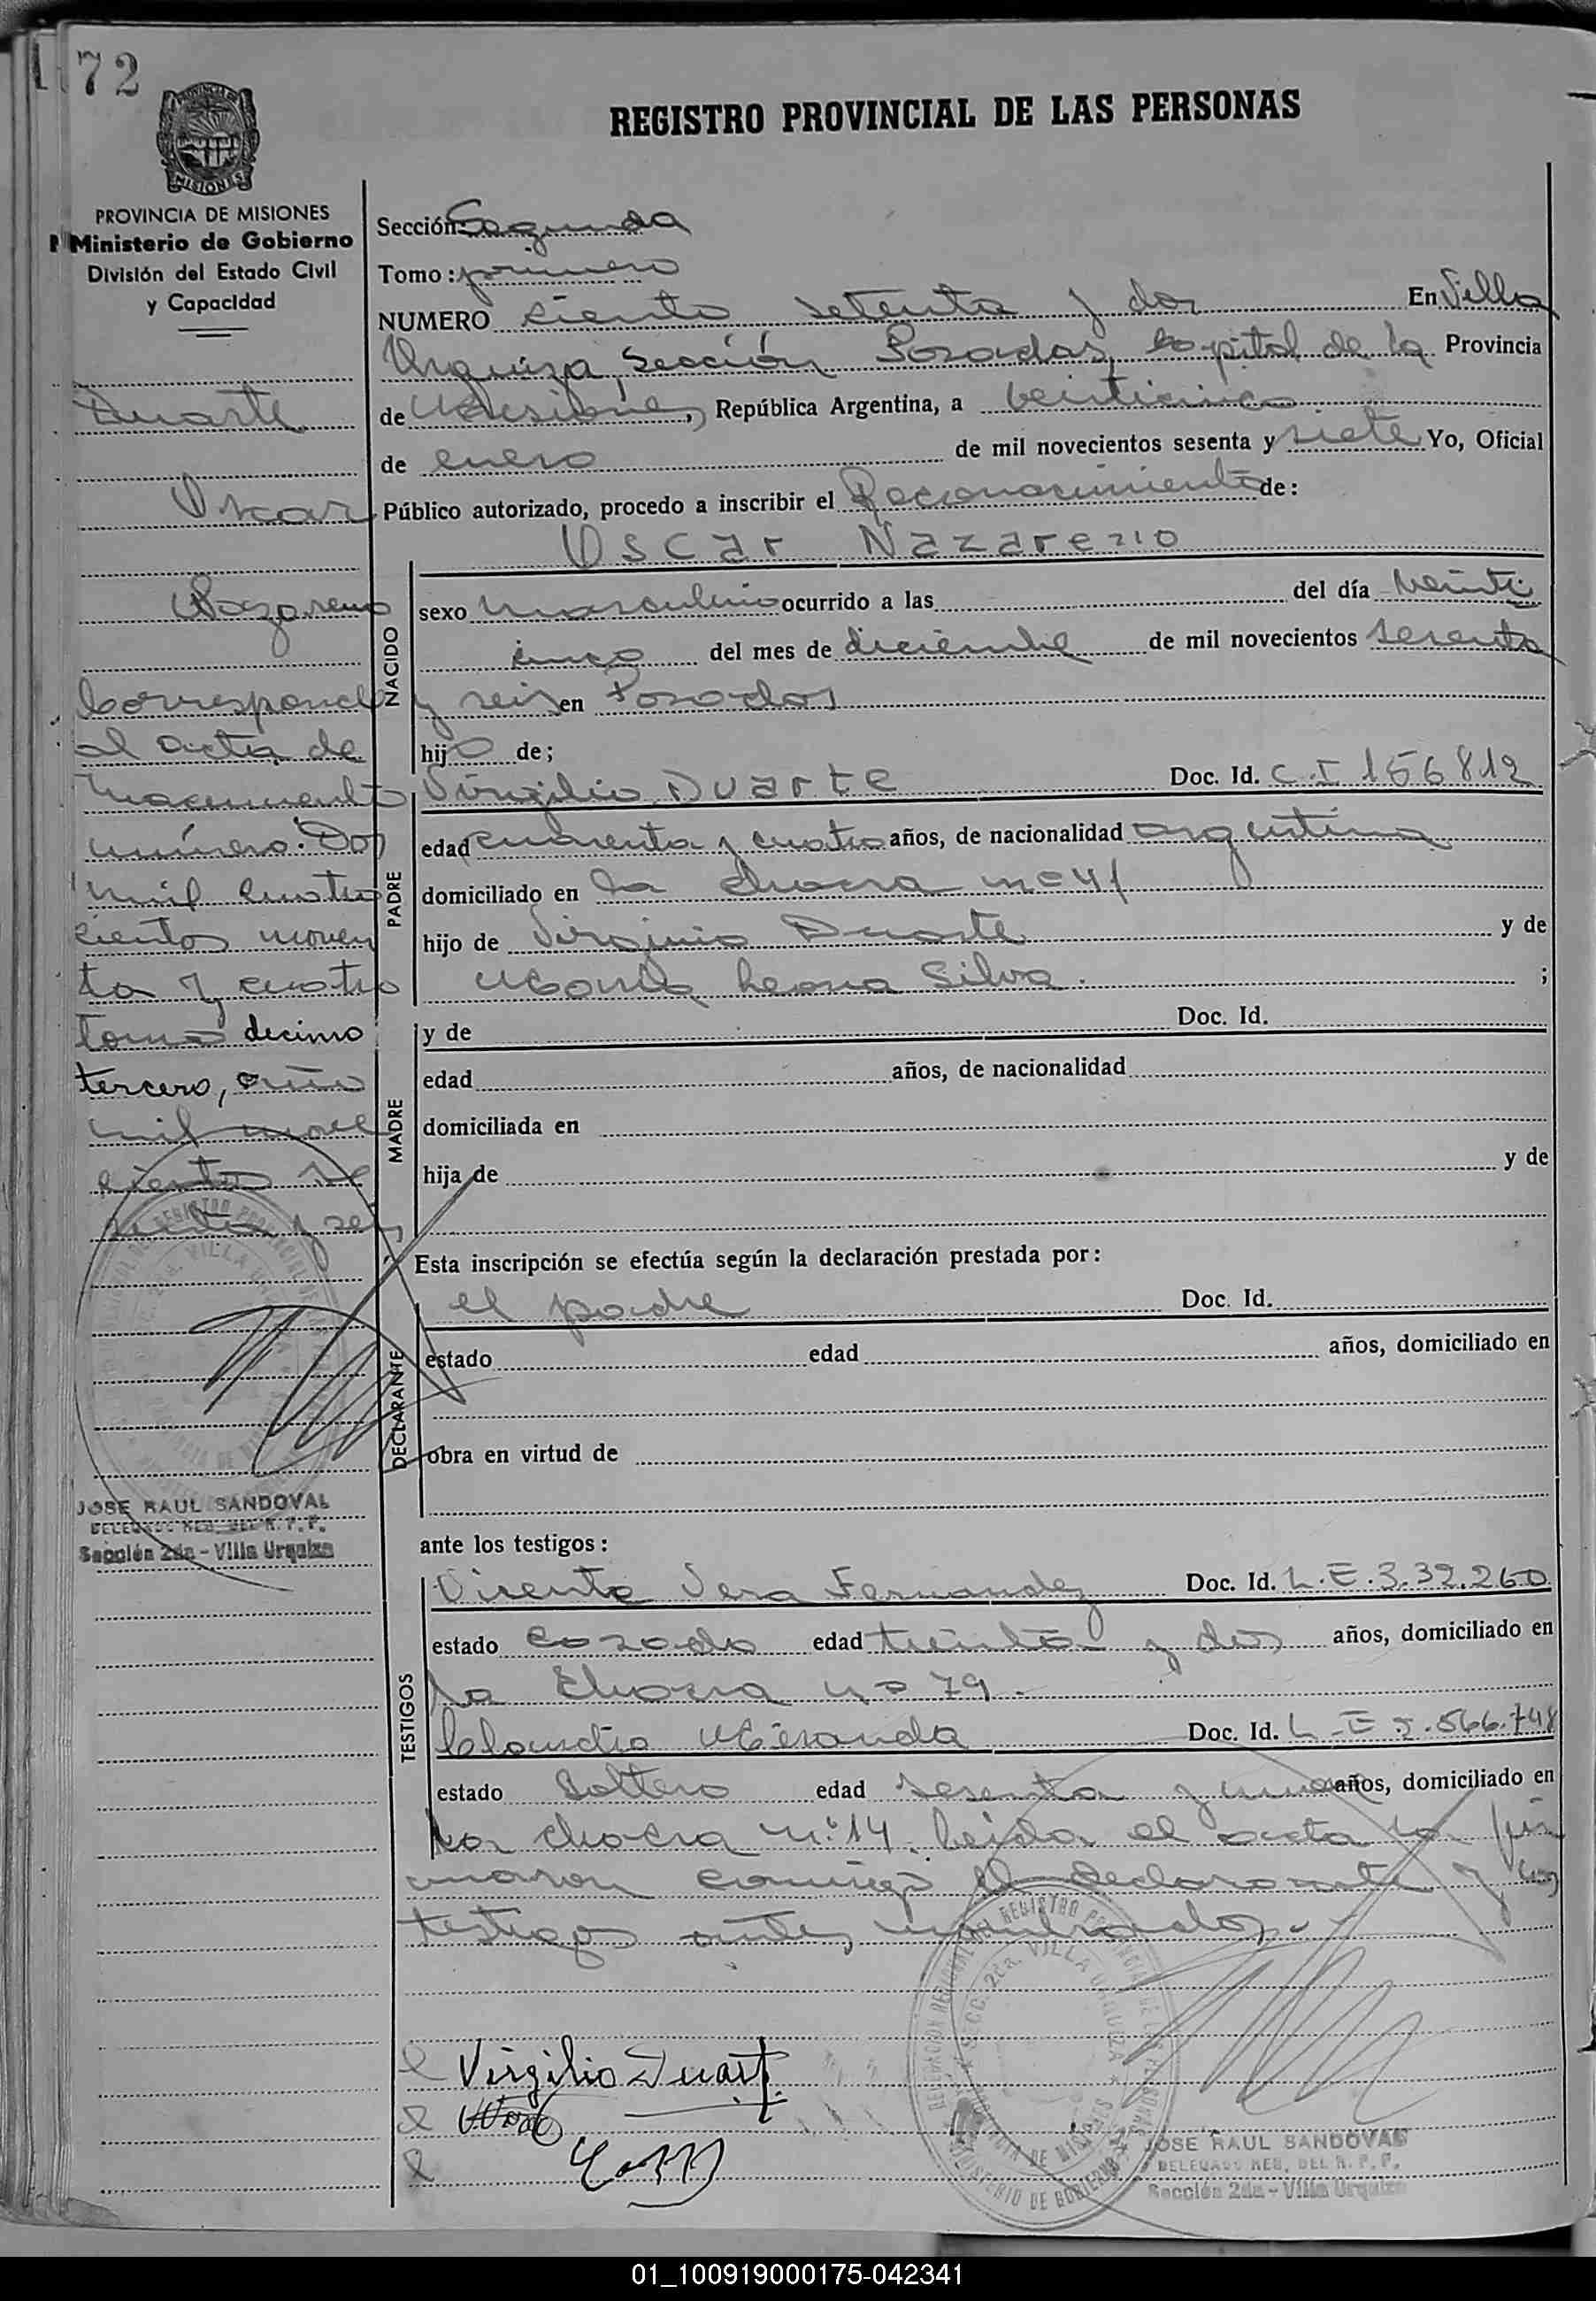 172
REGISTRO PROVINCIAL DE LAS PERSONAS
MISIONES
PROVINCIA DE MISIONES
Ministerio de Gobierno
División del Estado Civil
y Capacidad
Duarte
Oscar
Nazareno
Corresponde
al acta de
nacimiento
número: Dos
mil cuatro
cientos noven
ta y cuatro
tomo decimo
tercero, año
mil nove
cientos se
senta y seis
JOSE RAUL SANDOVAL
Sección 2da - Villa Urquiza
Sección: Segunda
Tomo: primero
NUMERO ciento setenta y dos En Villa
Urquiza, Sección Posadas, capital de la Provincia
de Misiones, República Argentina, a veinticinco
de enero de mil novecientos sesenta y siete Yo, Oficial
Público autorizado, procedo a inscribir el Reconocimiento de:
Oscar Nazareno
NACIDO
sexo masculino ocurrido a las del día veinti
cinco del mes de diciembre de mil novecientos sesenta
y seis en Posadas
hijo de;
PADRE
Virgilio Duarte Doc. Id. C.I 156812
edad cuarenta y cuatro años, de nacionalidad argentina
domiciliado en la chacra nº 41
hijo de Virginio Duarte y de
Silva ;
MADRE
y de Doc. Id.
edad años, de nacionalidad
domiciliada en
hija de y de
Esta inscripción se efectúa según la declaración prestada por:
DECLARANTE
el padre Doc. Id.
estado edad años, domiciliado en
obra en virtud de
ante los testigos:
TESTIGOS
Vicente Vera Fernandez Doc. Id. L.E.3.32.260
estado casado edad treinta y dos años, domiciliado en
la chacra nº 79.
Claudio Miranda Doc. Id. L.E 5.566.748
estado Soltero edad sesenta y años, domiciliado en
la chacra nº 14. Leída el acta la fir
maron conmigo el declarante y los
testigos antes nombrados.-
Virgilio Duarte
JOSE RAUL SANDOVAL
Sección 2da - Villa Urquiza
01_100919000175-042341